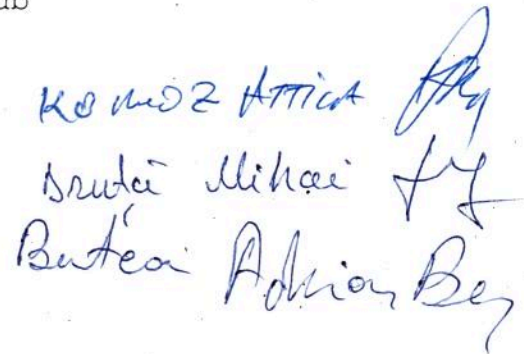 ub
KOMOZ ATTILA
Druță Mihai
Butcoi Adrian